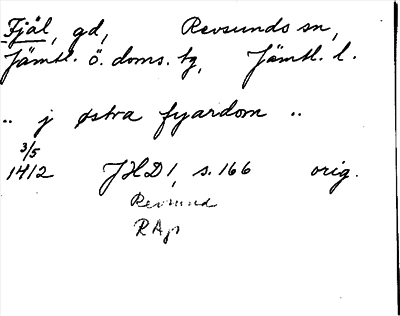 Fjäl, gd, Revsunds sn,
Jämtl. ö. doms. tg, Jämtl. l.
" j østra fyardom "
3/5
1412 JHD 1, s. 166 orig.
Revsund
RAp